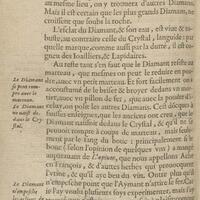 au mesme lieu, on y trouuera d'autres Diamans.
Mais il est certain que les plus grands Diamans, ne
croissent que soubs la roche.
L'esclat du Diamant, & son eau, est viue & ro-
buste, au contraire celle du Crystal, languide: par
quelle marque, comme aussi par la dureté, il est co-
gneu des Ioailliers, & Lapidaires.
Au reste tant s'en faut que le Diamant resiste au
marteau, que mesmes on peut le reduire en pou-
auec vn petit marteau. Et ceux du mestier ont
accoustumé de le briser & broyer dedans vn mor-
tier, auec vn pillon de fer, que auec la poudre
polissent les autres Diamans. Cest le
subtils d'iceux enseignent, que les anciens ont creu, que le
Diamant naissoit dedans le Crystal, & qu'il se
pouuoit rompre à coups de marteau, mais
par le sang du bouc: principalement si le bouc
(selon l'opinion de quelques vns)
auparauant de l'apium, que nous appellons Ache
en François, & d'autres herbes qui prouoquent
l'vrine, & qu'il aye beu du vin. Outre plus qu'il
n'empesche point que l'Aymant n'attire le fer. Car
ie l'ay voulu plusieurs foys experimenter, mais i'ay
Le Diamant
se peut rom-
pre auec le
marteau.
Le Diamant
ne naist de-
dans le Cry-
stal.
Le Diamant
n'empesche